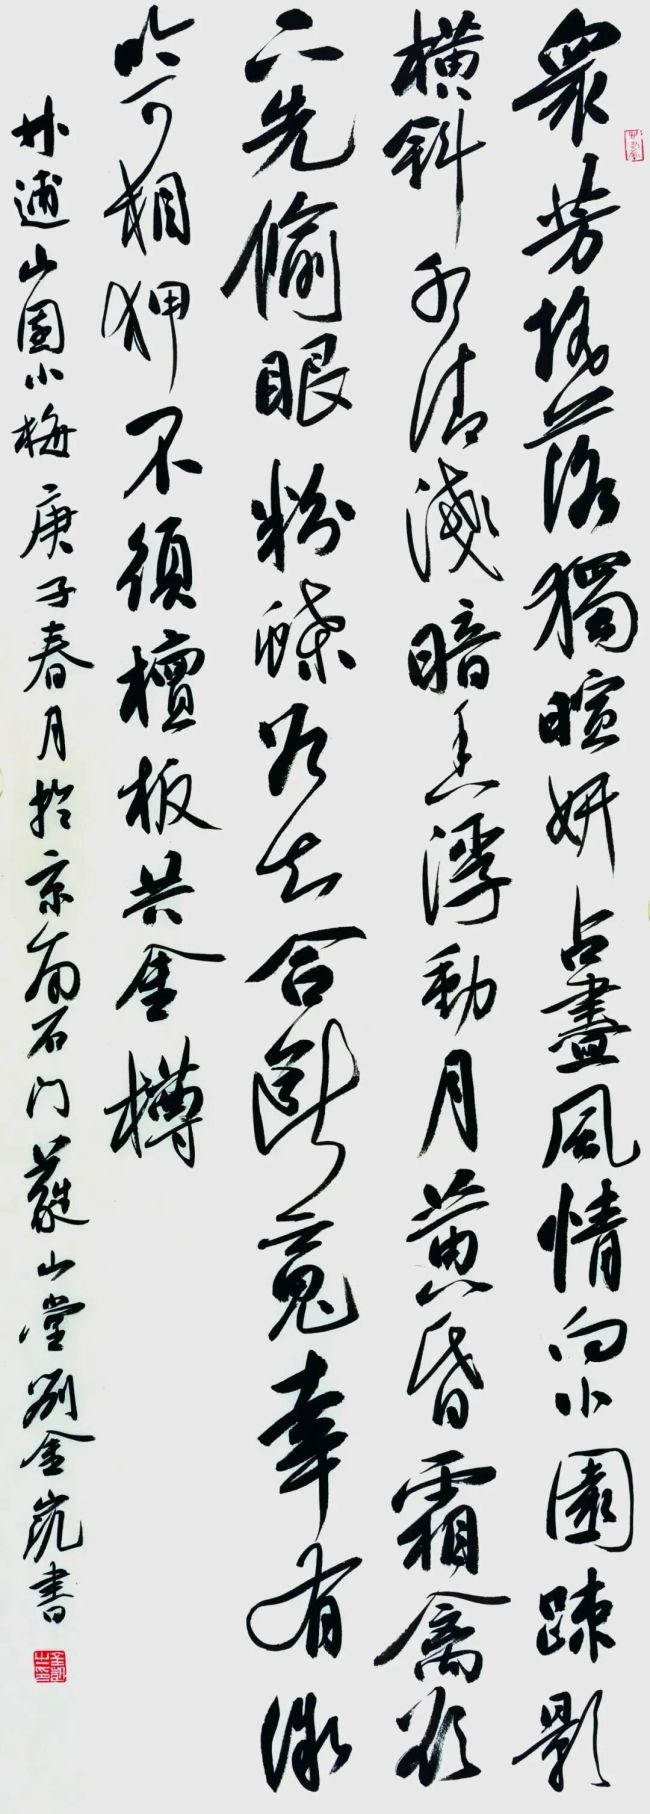 眾芳搖落獨暄妍占盡風情向小園疎影
橫斜水清淺暗香浮動月黃昏霜禽欲
下先偷眼粉蝶如知合斷魂幸有微
吟可相狎不須檀板共金樽
林逋山園小梅庚子春月於京南石門山堂劉金凱書